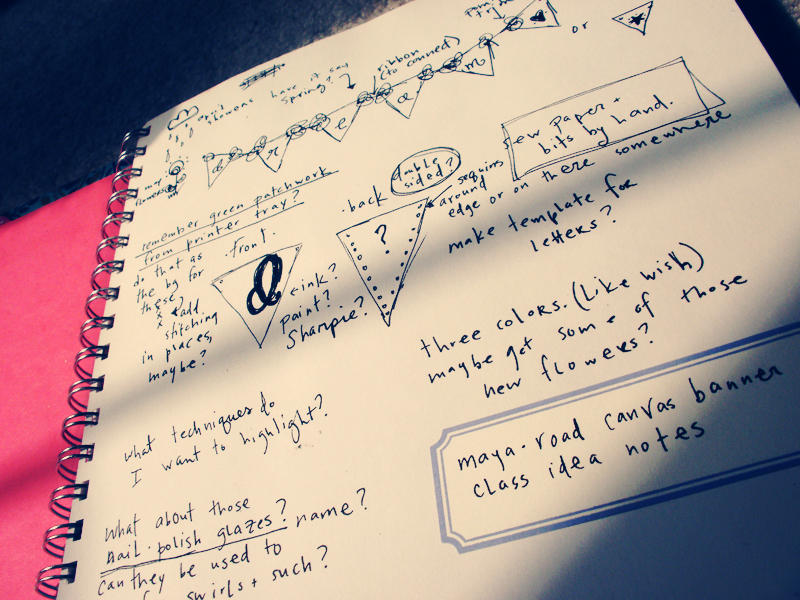 or
April
showers
have it say
Spring?
ribbon
(to connect)
d r e a m
may
flowers
sew paper +
bits by hand.
remember green patchwork
from printer tray?
do that as
the bg for
these
add
stitching
in places,
maybe?
.front.
ink?
paint?
Sharpie?
.back
double
sided?
?
sequins
around
edge or on there somewhere
make template for
letters?
three colors. (like wish)
maybe get some of those
new flowers?
what techniques do
I want to highlight?
maya.road canvas banner
class idea notes
what about those
nail.polish glazes? name?
can they be used to
swirls + such?